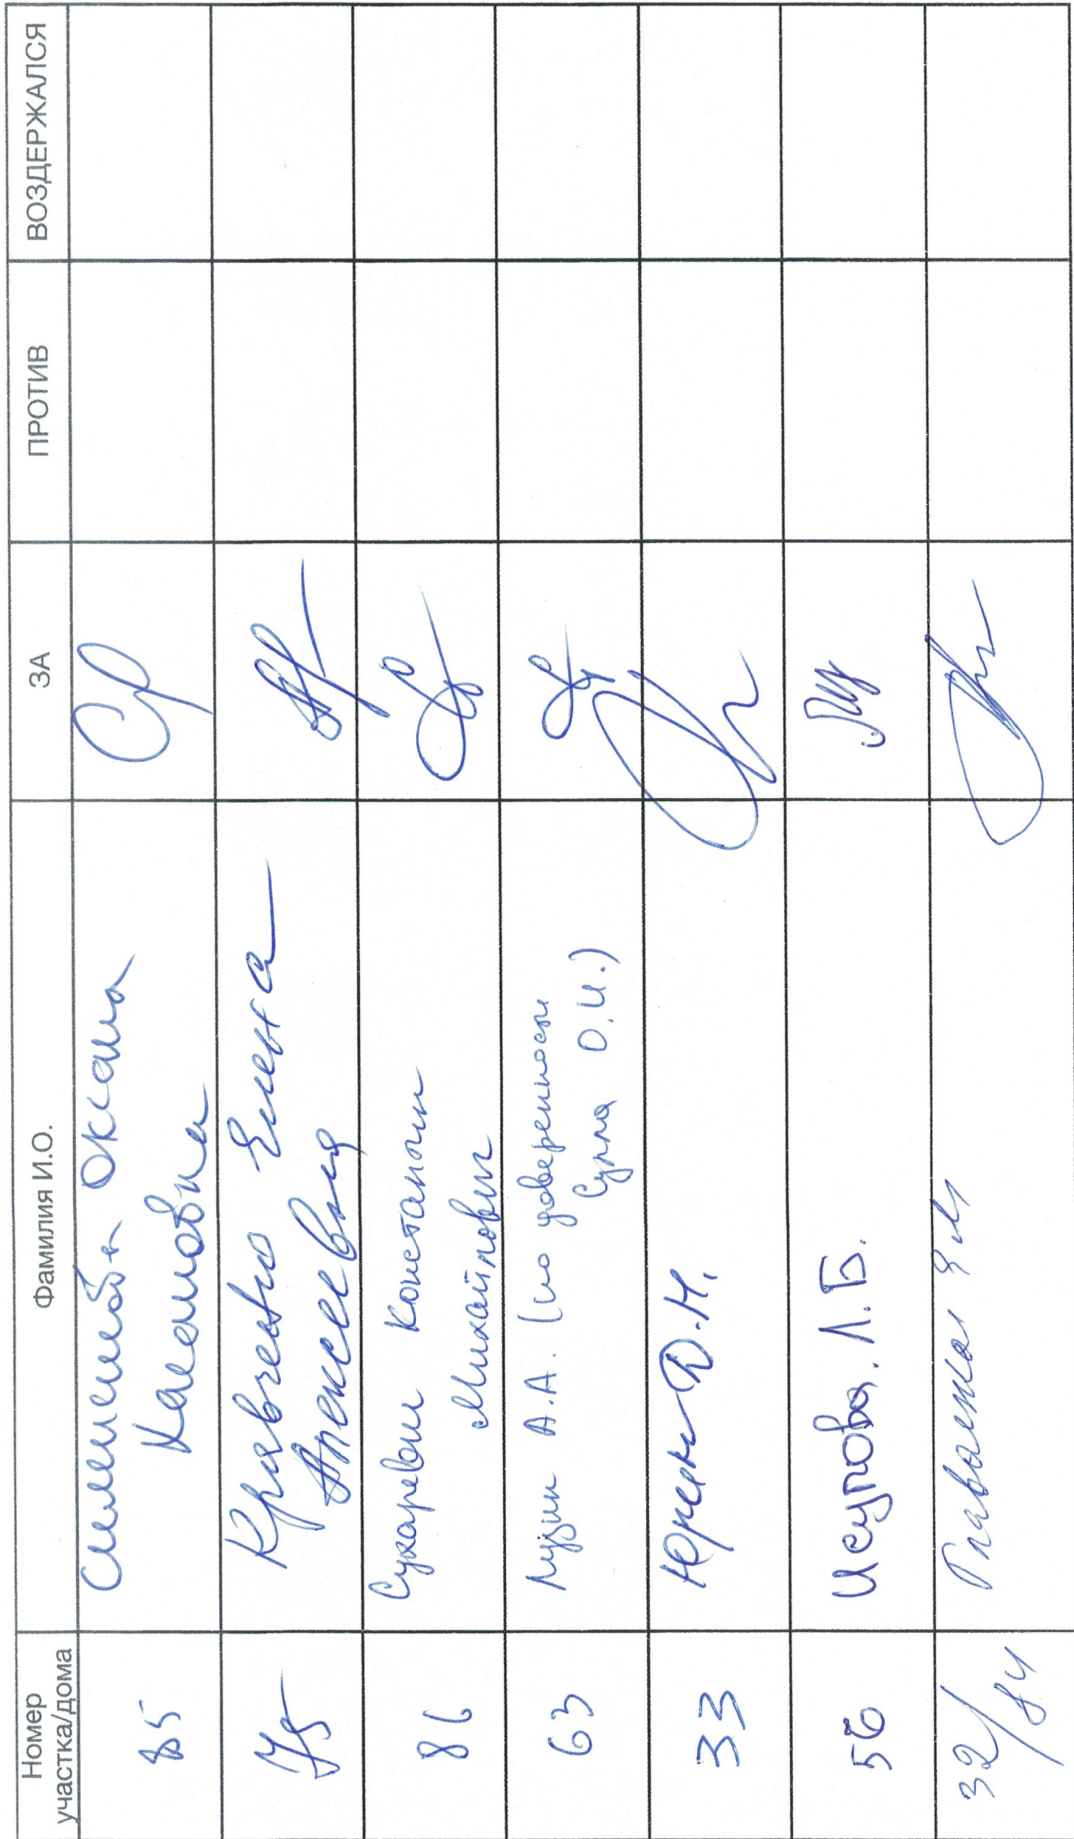 Номер участка/дома Фамилия И.О. ЗА ПРОТИВ ВОЗДЕРЖАЛСЯ
85 Оксана
75 Кравченко Елена
Алексеевна
86 Сухаревом Константин
Михайлович
63 Лузин А.А. (по доверенности
Супла О.И.)
33 Юркин Д.Н.
56 Исупова Л.Б.
32/84